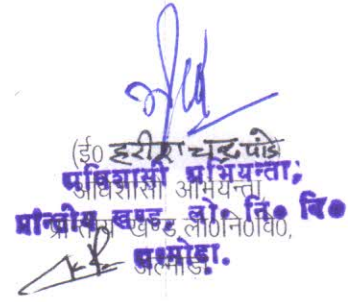 (ई० हरीश चन्द्र पांडे
अधिशासी अभियन्ता,
अधिशासी अभियन्ता
प्रान्तीय खण्ड, लो० नि० वि०
प्रान्तीय खण्ड लो०नि०वि०,
अल्मोड़ा.
अल्मोड़ा